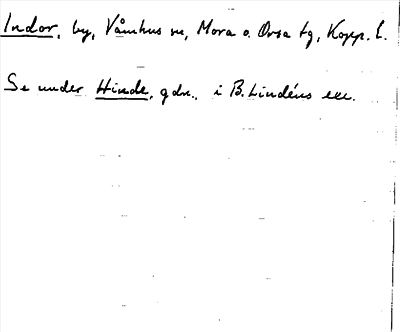 Indor, by, Våmhus sn, Mora o. Orsa tg, Kopp. l.
Se under Hinde, gdn., i B. Lindéns exc.